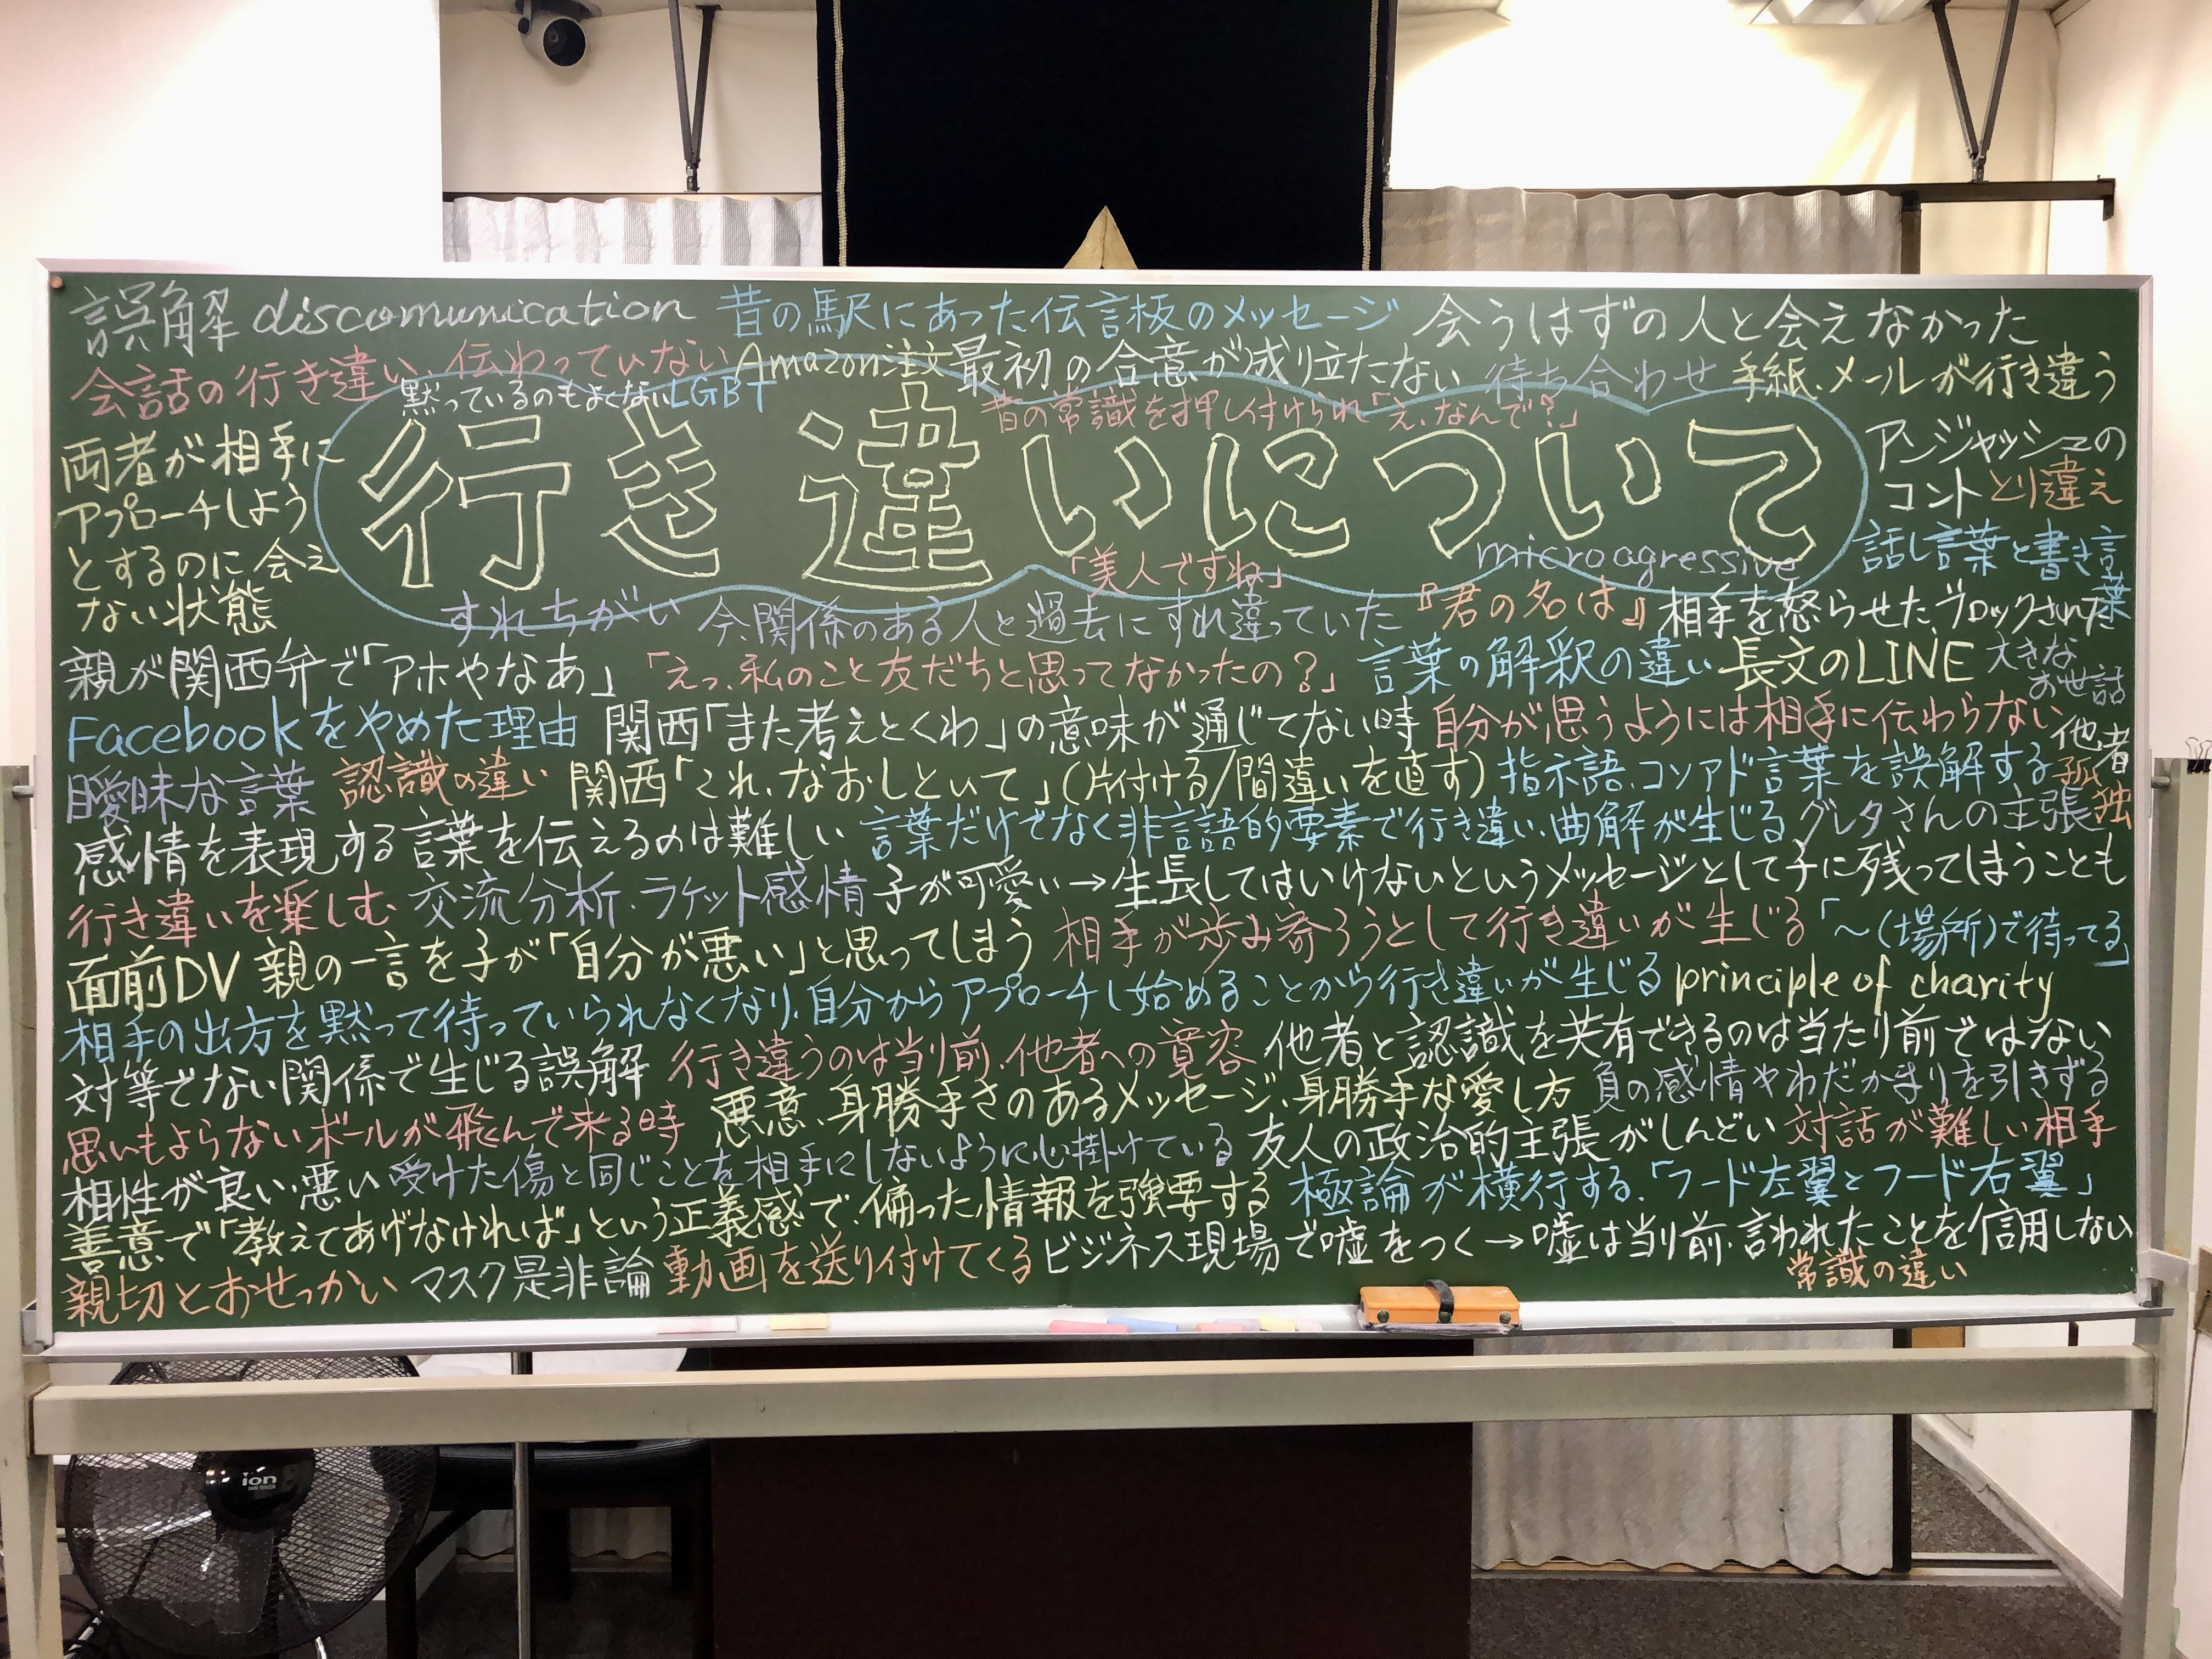 誤解 discomunication 昔の駅にあった伝言板のメッセージ 会うはずの人と会えなかった
会話の行き違い、伝わっていない Amazon注文 最初の合意が成り立たない 待ち合わせ 手紙、メールが行き違う
黙っているのもよくない LGBT 昔の常識を押し付けられ「え、なんで?」
行き違いについて
両者が相手に
アプローチしよう
とするのに会え
ない状態
アンジャッシュの
コント とり違え
話し言葉と書き言葉
「美人ですね」 microagressive
すれちがい 今、関係のある人と過去にすれ違っていた 『君の名は』 相手を怒らせた、ブロックされた
親が関西弁で「アホやなあ」 「えっ、私のこと友だちと思ってなかったの?」 言葉の解釈の違い 長文のLINE 大きな
お世話
Facebookをやめた理由 関西「また考えとくわ」の意味が通じてない時 自分が思うようには相手に伝わらない 他者
曖昧な言葉 認識の違い 関西「これ、なおしといて」(片付ける/間違いを直す) 指示語、コソアド言葉を誤解する 孤独
感情を表現する言葉を伝えるのは難しい 言葉だけでなく非言語的要素で行き違い、曲解が生じる グレタさんの主張
行き違いを楽しむ 交流分析、ラケット感情 子が可愛い→生長してはいけないというメッセージとして子に残ってしまうことも
面前DV 親の一言を子が「自分が悪い」と思ってしまう 相手が歩み寄ろうとして行き違いが生じる 「〜(場所)で待ってる」
相手の出方を黙って待っていられなくなり、自分からアプローチし始めることから行き違いが生じる principle of charity
対等でない関係で生じる誤解 行き違うのは当り前、他者への寛容 他者と認識を共有できるのは当たり前ではない
思いもよらないボールが飛んで来る時 悪意、身勝手さのあるメッセージ、身勝手な愛し方 負の感情やわだかまりを引きずる
相性が良い、悪い 受けた傷と同じことを相手にしないように心掛けている 友人の政治的主張がしんどい 対話が難しい相手
善意で「教えてあげなければ」という正義感で、偏った情報を強要する 極論が横行する、「フード左翼とフード右翼」
親切とおせっかい マスク是非論 動画を送り付けてくる ビジネス現場で嘘をつく→嘘は当り前、言われたことを信用しない
常識の違い
ion